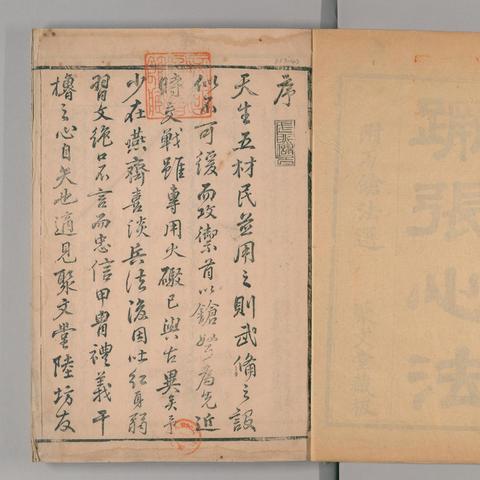 序
天生五材民並用之則武備之設
似不可緩而攻禦首以鎗弩爲先近
時交戰雖專用火礮已與古異矣予
少在燕齊喜談兵法後因吐紅身弱
習文絶口不言而忠信甲胄禮義干
櫓之心自矢也適見聚文堂陸坊友
張心法